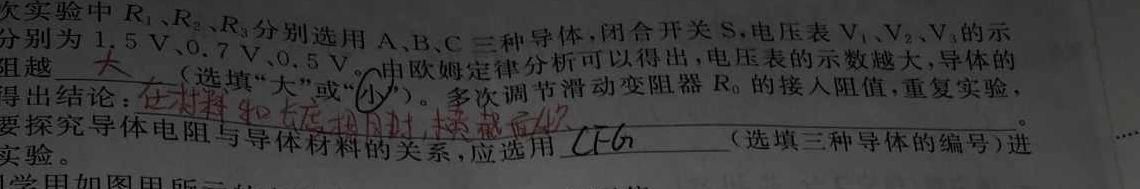 次实验中 R₁、R₂、R₃分别选用 A、B、C 三种导体,闭合开关 S,电压表 V₁、V₂、V₃的示
分别为 1.5 V、0.7 V、0.5 V。由欧姆定律分析可以得出,电压表的示数越大,导体的
阻越 大 (选填“大”或“小”)。多次调节滑动变阻器 R₀ 的接入阻值,重复实验,
得出结论:在材料和长度相同时,横截面积 。
要探究导体电阻与导体材料的关系,应选用 CFG (选填三种导体的编号)进
实验。